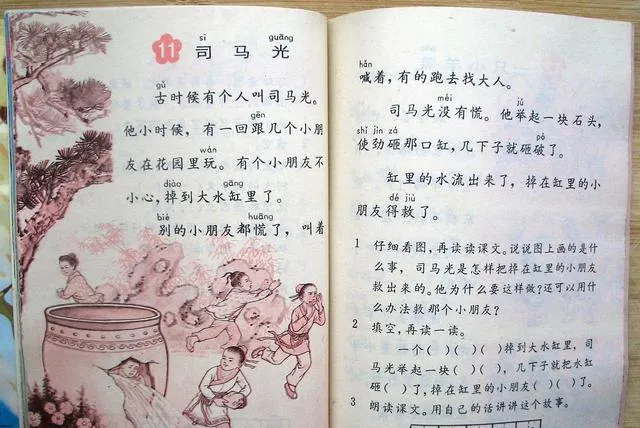 sī guāng
11 司马光
gǔ
古时候有个人叫司马光。
gēn
他小时候，有一回跟几个小朋
wán
友在花园里玩。有个小朋友不
diào gāng
小心，掉到大水缸里了。
bié huāng
别的小朋友都慌了，叫着
hǎn
喊着，有的跑去找大人。
méi jǔ
司马光没有慌。他举起一块石头，
shǐ jìn zá pò
使劲砸那口缸，几下子就砸破了。
缸里的水流出来了，掉在缸里的小
dé jiù
朋友得救了。
1 仔细看图，再读读课文。说说图上画的是什
么事，司马光是怎样把掉在缸里的小朋友
救出来的。他为什么要这样做？还可以用什
么办法救那个小朋友？
2 填空，再读一读。
一个( )( )( )掉到大水缸里，司
马光举起一块( )( )，几下子就把水缸
砸( )了，掉在缸里的小朋友( )( )了。
3 朗读课文。用自己的话讲讲这个故事。